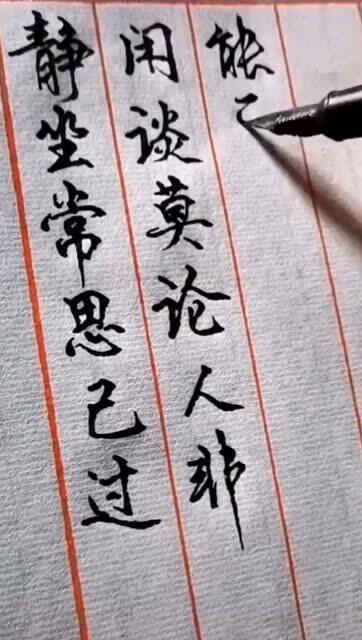 静坐常思己过
闲谈莫论人非
能